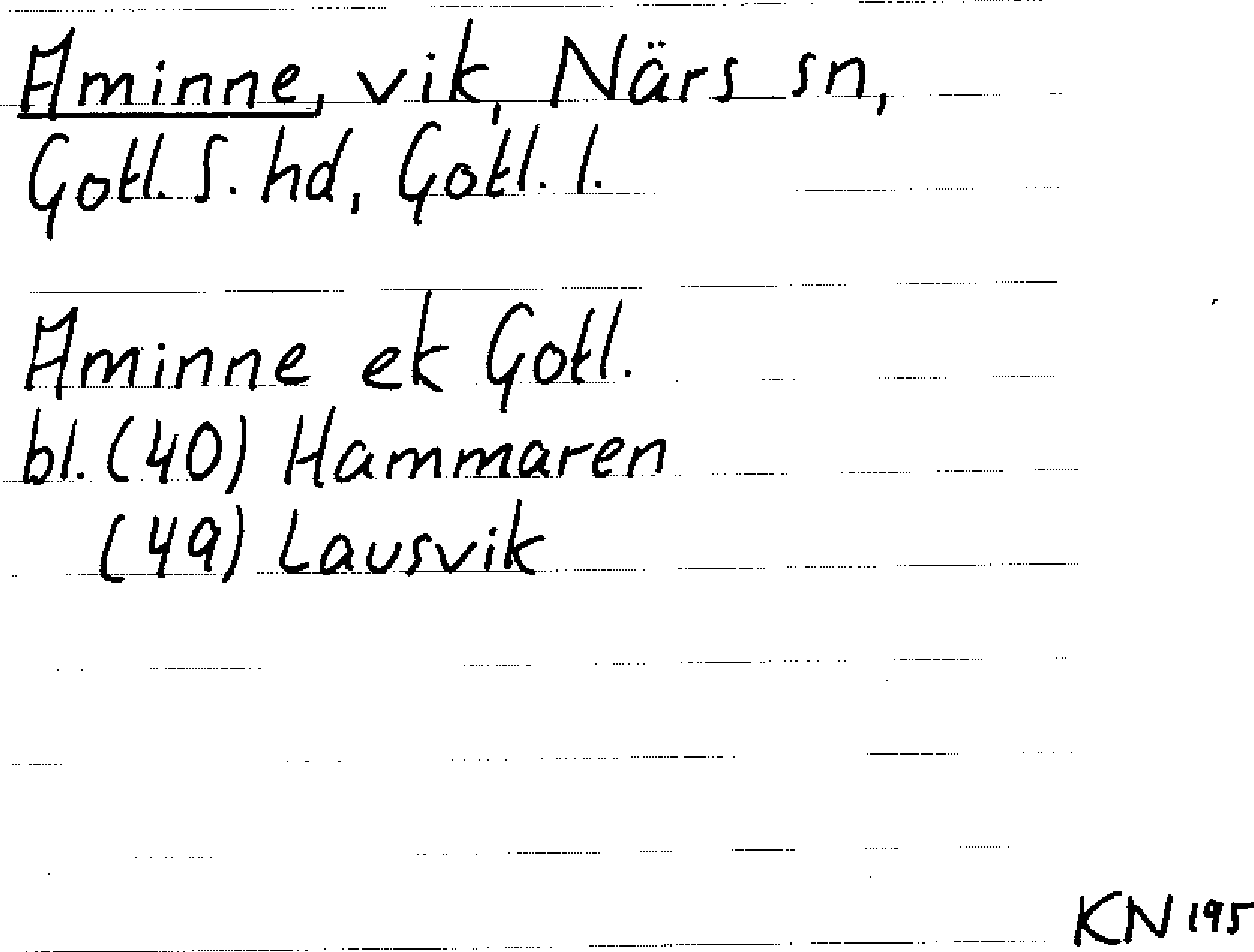 Aminne, vik, Närs sn,
Gotl. S. hd, Gotl. l.
Aminne ek Gotl.
bl. (40) Hammaren
(49) Lausvik
KN 195